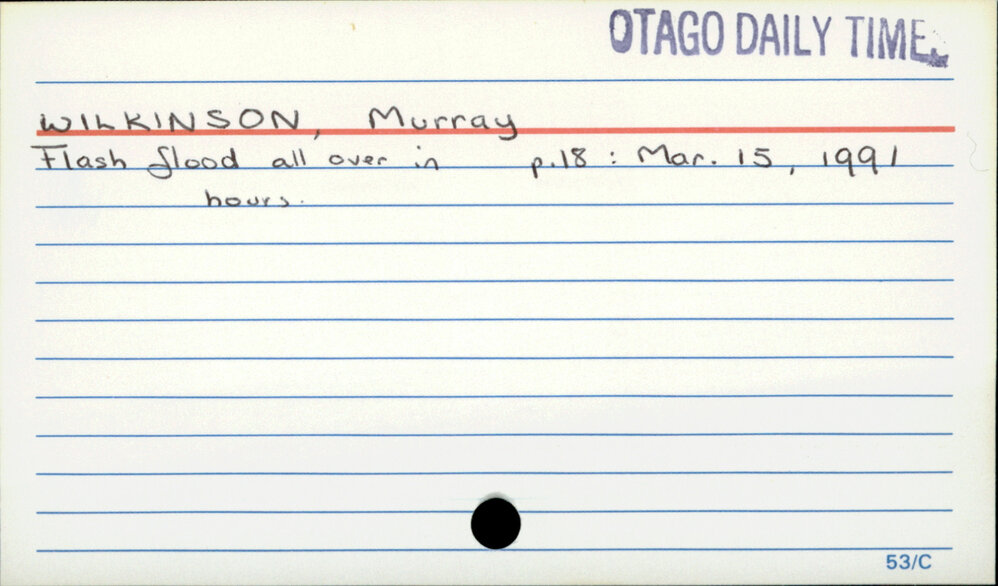 OTAGO DAILY TIME
WILKINSON, Murray
Flash flood all over in p.18 : Mar. 15, 1991
hours.
53/C